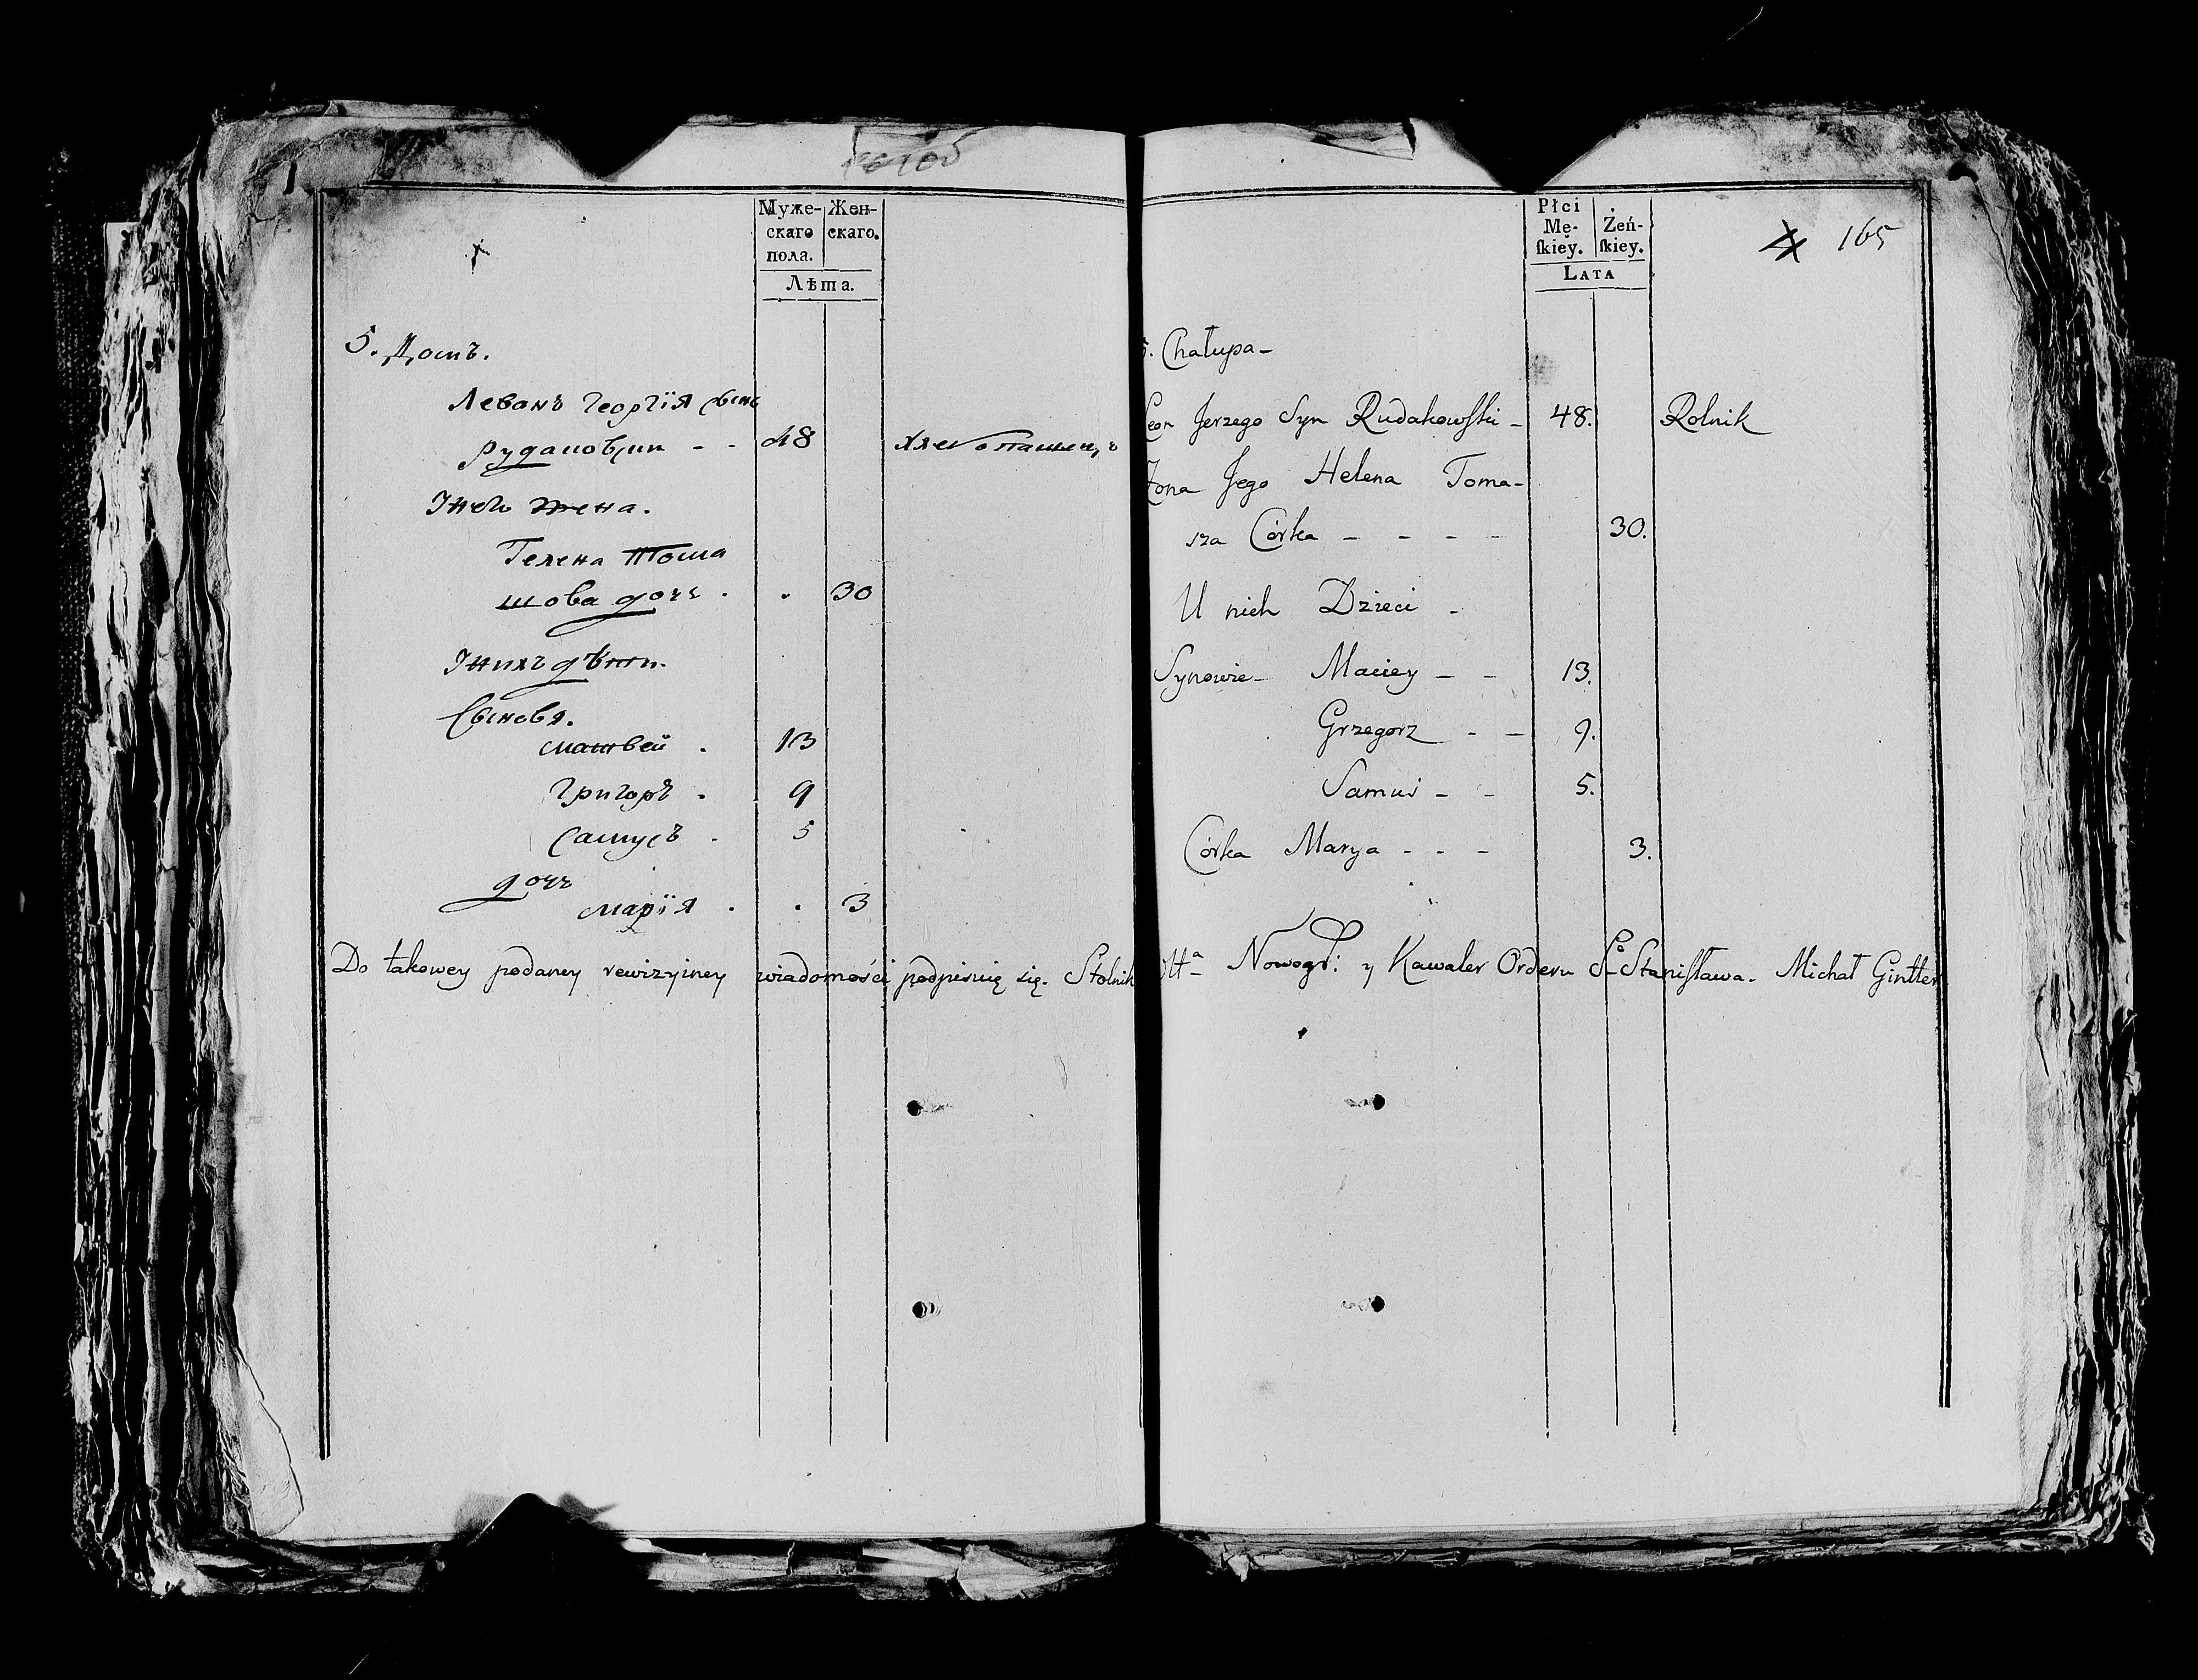 Муже-
скаго
пола.
Жен-
скаго.
Лѣта.
5. Домъ.
Леванъ Георгїя Сынъ
Рудаковскии - - 48 Хлебопашецъ
Іжеᲂ жена.
Гелена Тома
шова дочь . . 30
Іжихъ дѣти.
Сыновя.
Матвей . 13
Григоръ . 9
Самусъ . 5
дочь
Марїя . . 3
Płci
Mę-
ſkiey.
Żeń-
ſkiey.
LATA
165
5. Chałupa -
Leon Jerzego Syn Rudakowſki - 48. Rolnik
Żona Jego Helena Toma-
sza Córka - - - - 30.
U nich Dzieci -
Synowie - Maciey - - 13.
Grzegorz - - 9.
Samuś - - 5.
Córka Marya - - - 3.
Do takowey podaney rewizyiney wiadomości podpisuię się. Stolnik Wttª Nowogr: y Kawaler Orderu Sº Staniſława. Michał Gintter